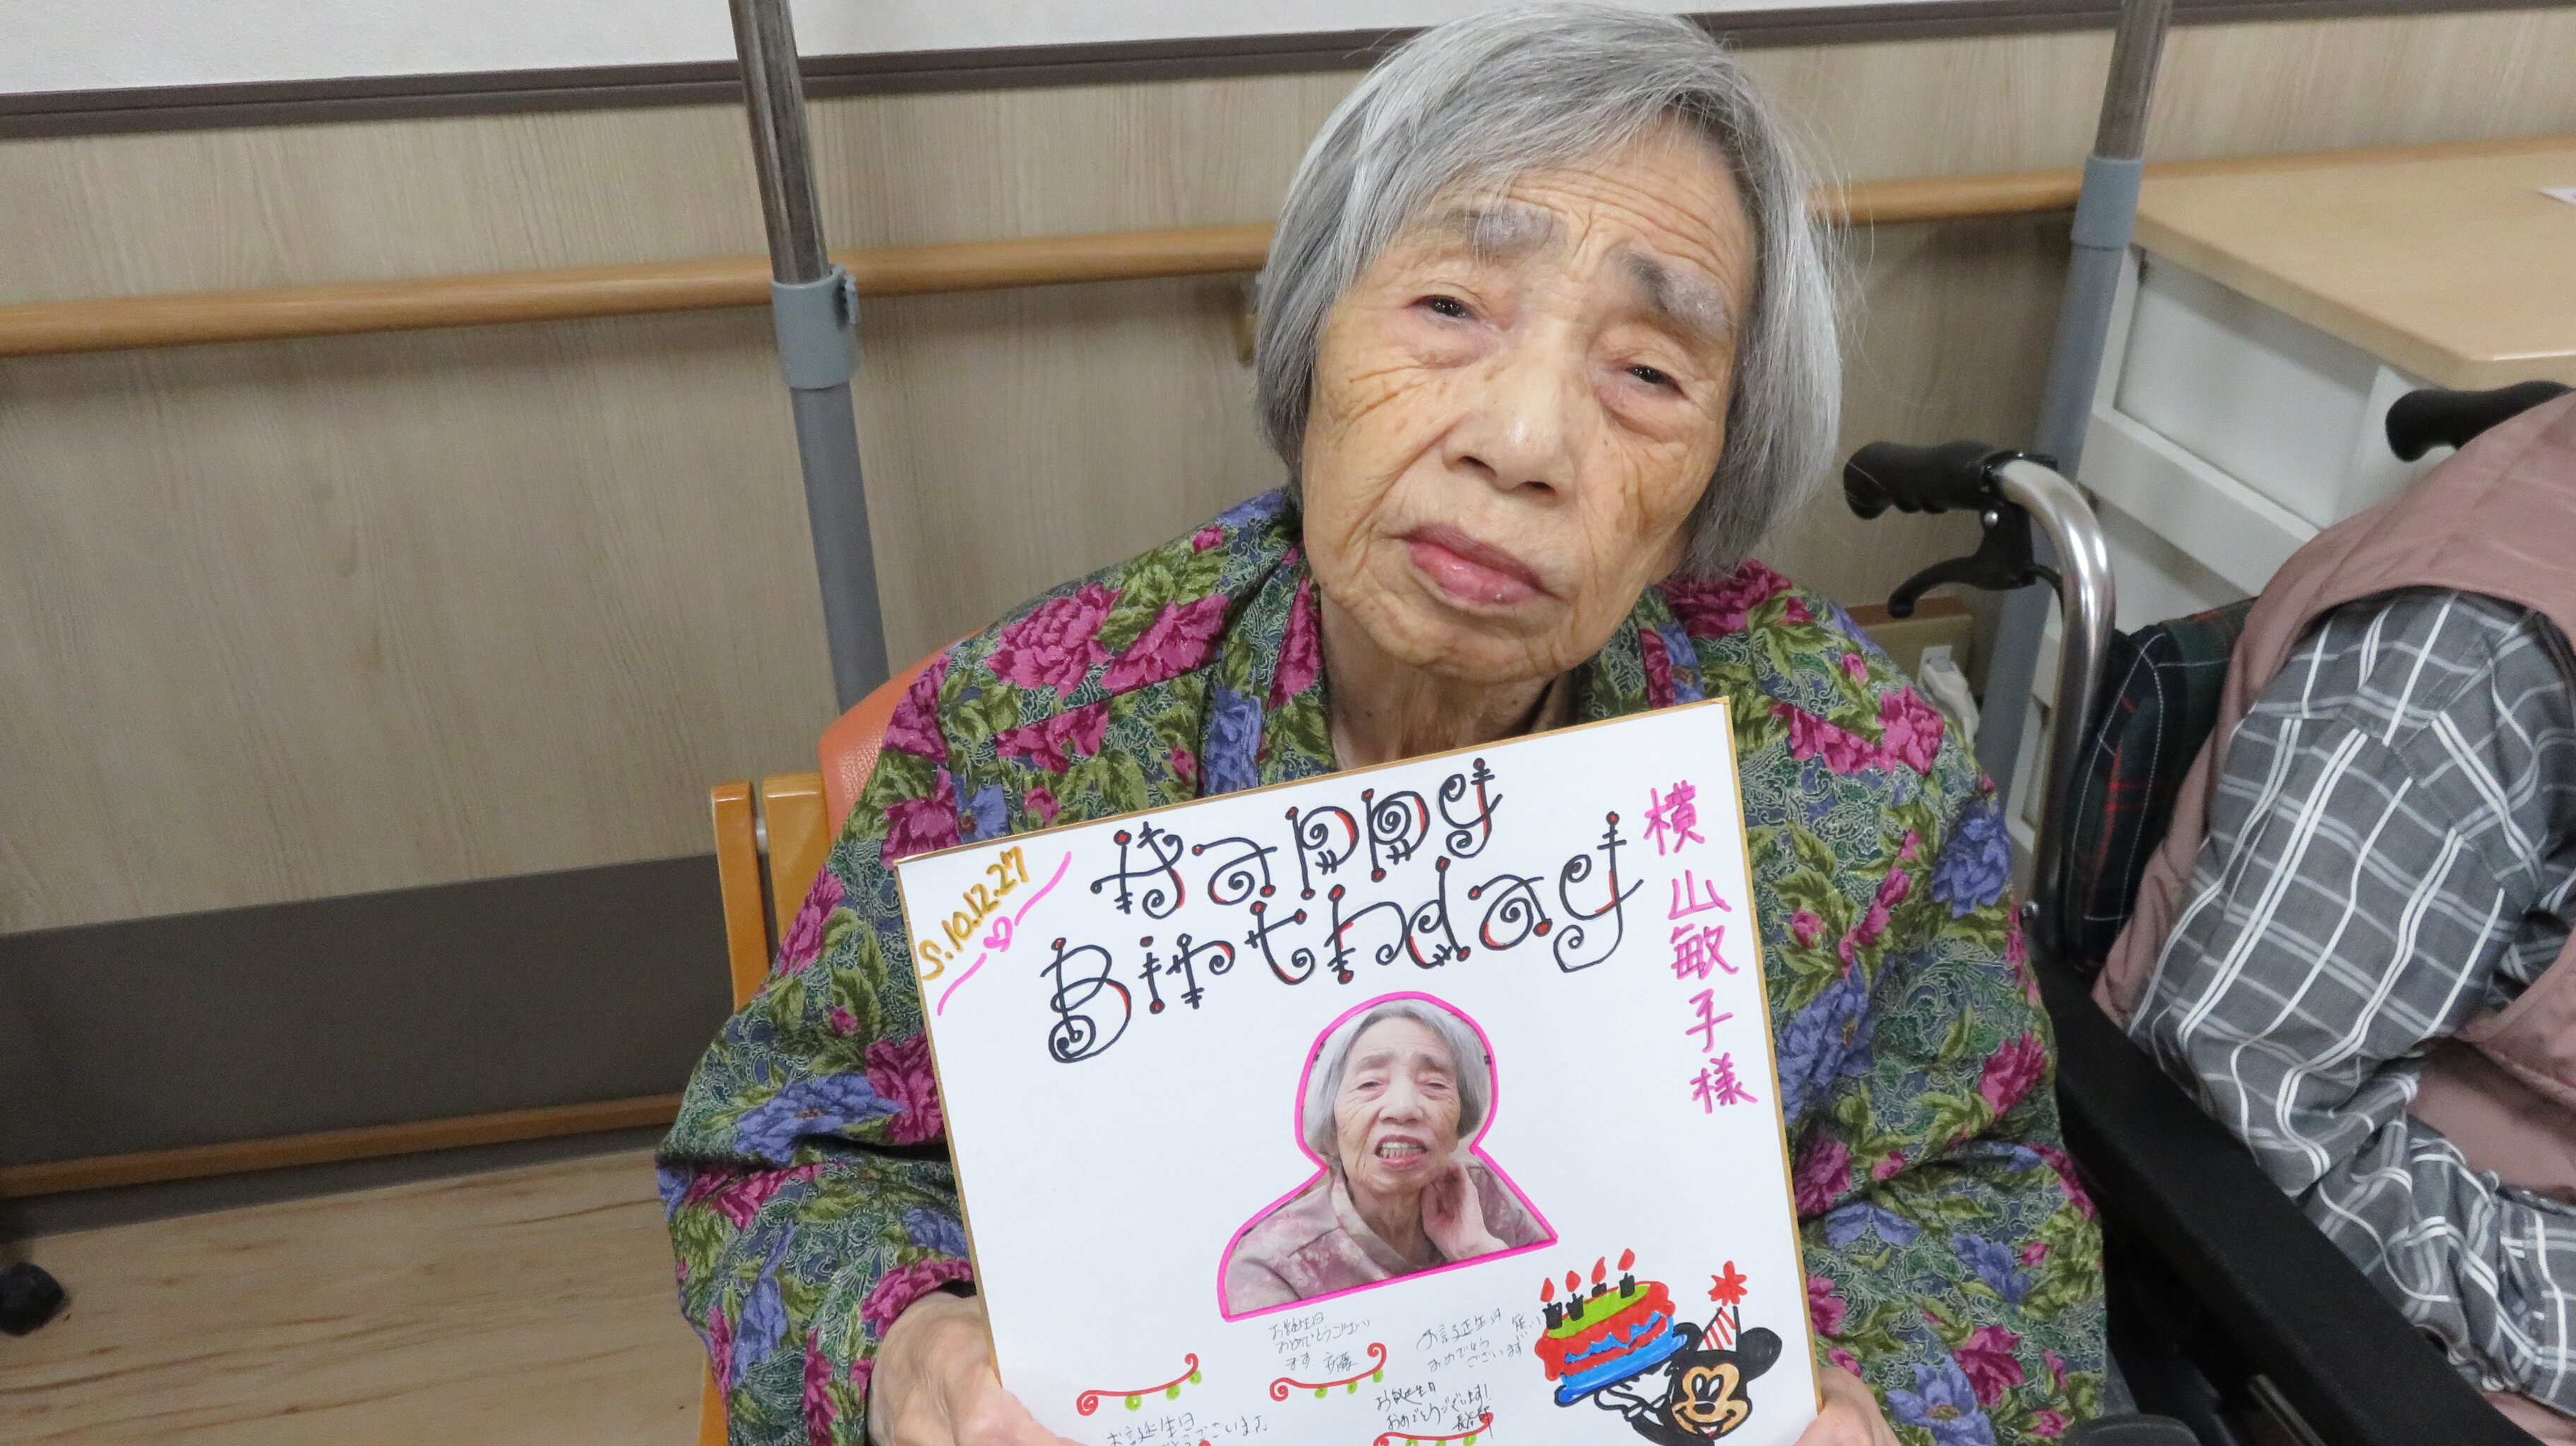 S.10.12.27
Happy
Birthday
横山敏子様
お誕生日
おめでとうござい
ます 斉藤
お誕生日
おめでとう
ございます
お誕生日
おめでとうございます!
お誕生日
ございます